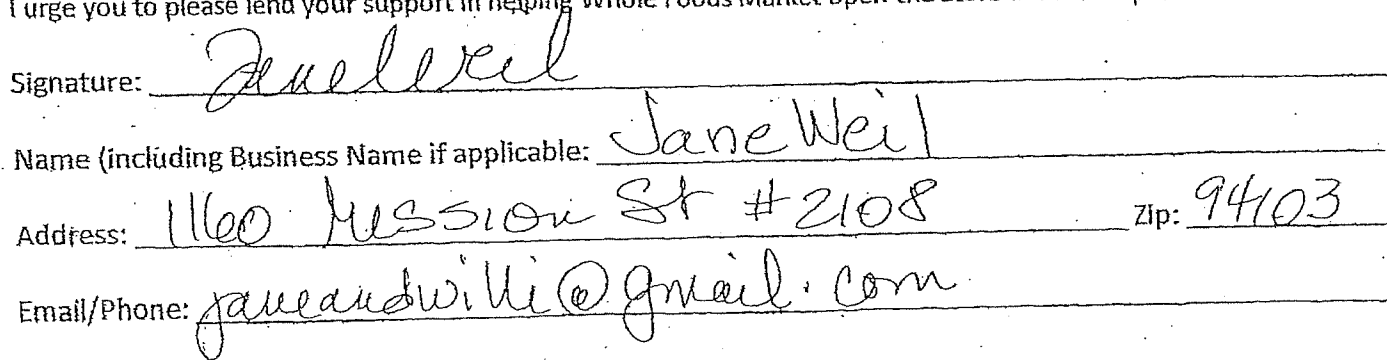 I urge you to please lend your support in helping Whole Foods Market open
Signature: Jane Weil
Name (including Business Name if applicable: Jane Weil
Address: 1160 Mission St #2108 Zip: 94103
Email/Phone: janeandwilli@gmail.com